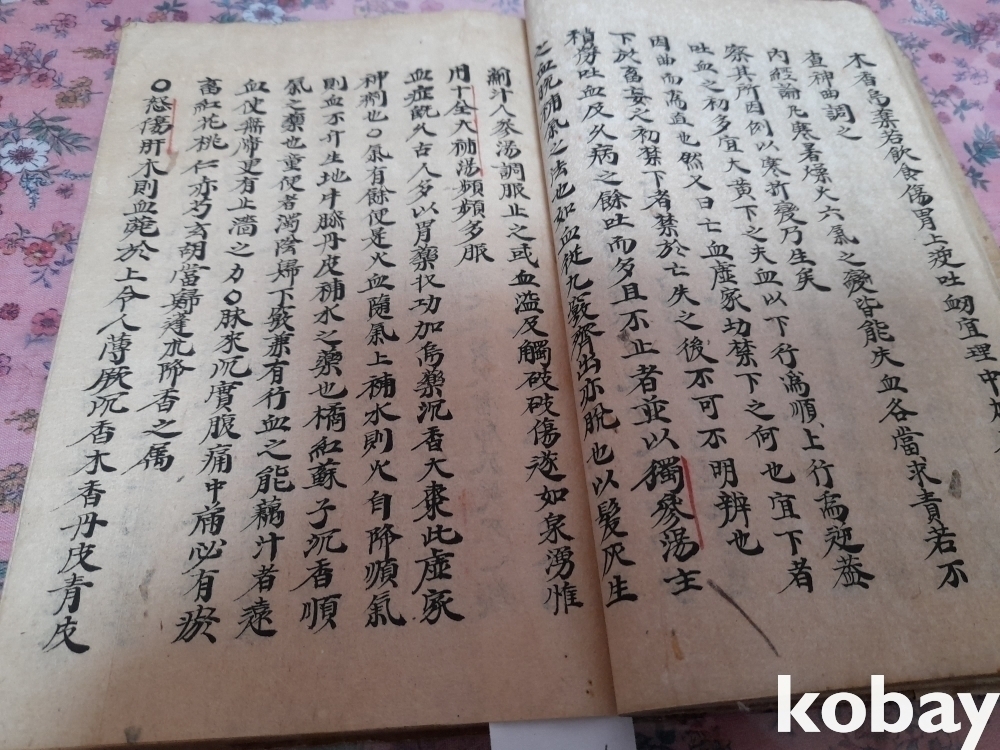 木香烏藥若飲食傷胃上逆吐衂宜理中
查神曲調之
內歿論凡寒暑燥火六氣之變皆能失血各當求責若不
察其所因例以寒折變乃生矣
吐血之初多宜大黃下之夫血以下行為順上行為逆蓋
因曲而為直也然又曰亡血虛家切禁下之何也宜下者
下於妄之初禁下者禁於亡失之後不可不明辨也
稍勞吐血及久病之餘吐而多且不止者並以獨參湯主
之血脫補氣之法也如血從九竅齊出亦脫也以髮灰生
薊汁人參湯調服止之或血溢及觸破傷遂如泉湧惟
用十全大補湯頻頻多服
血症既久古人多以胃藥收功加烏藥沉香大棗此虛家
神剤也○氣有餘便是火血隨氣上補水則火自降順氣
則血不升生地牛膝丹皮補水之藥也橘紅蘇子沉香順
氣之藥也童便者濁陰歸下竅兼有行血之能藕汁者遠
血使無滯更有止濇之力○脉來沉實腹痛中痛必有瘀
畜紅花桃仁赤芍玄胡當歸蓬朮降香之属
○怒傷肝木則血菀於上令人薄厥沉香木香丹皮青皮
kobay